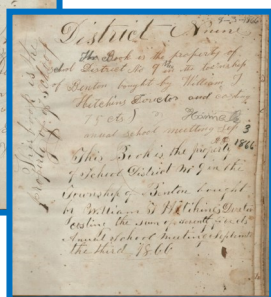 9-3-1866
District Nine
This Book is the property of
School District No 9th in the township
of Benton bought by William
Hitchins Director and costing
75 cts)
annual school meeting Sep 3
1866
This Book is the property
of School District No 9 in the
Township of Benton bought
by William J Hitchins Director
costing the sum of seventy five cts
Annual School Meeting September
the third, 1866